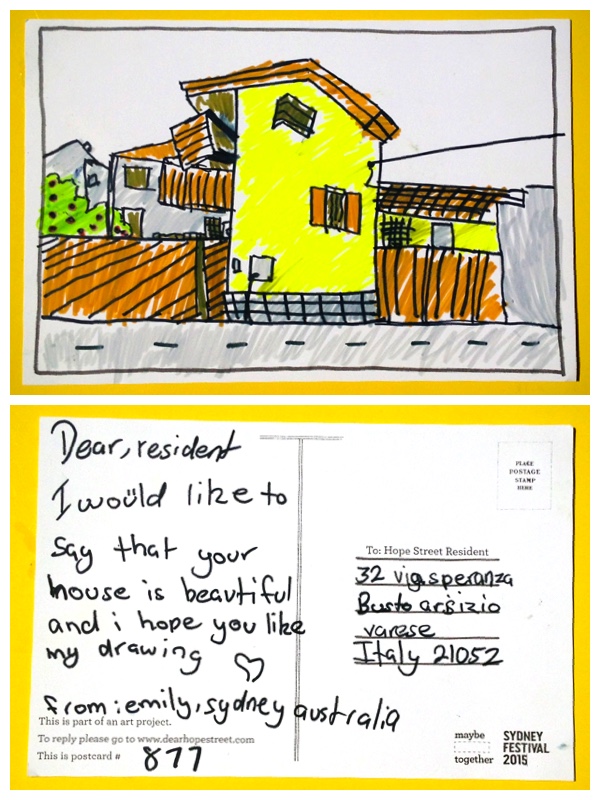 Dear, resident
I would like to
say that your
house is beautiful
and i hope you like
my drawing
from: emily, sydney australia
This is part of an art project.
To reply please go to www.dearhopestreet.com
This is postcard # 877
PLACE
POSTAGE
STAMP
HERE
To: Hope Street Resident
32 via speranza
Busto arsizio
varese
Italy 21052
maybe
together
SYDNEY
FESTIVAL
2015